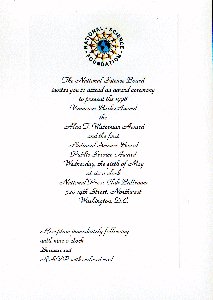 NATIONAL SCIENCE FOUNDATION
The National Science Board
invites you to attend an award ceremony
to present the 1998
Vannevar Bush Award
the
Alan T. Waterman Award
and the first
National Science Board
Public Service Award
Wednesday, the sixth of May
at six o'clock
National Press Club Ballroom
529 14th Street, Northwest
Washington, D.C.
Reception immediately following
until nine o'clock
Business
R.S.V.P.